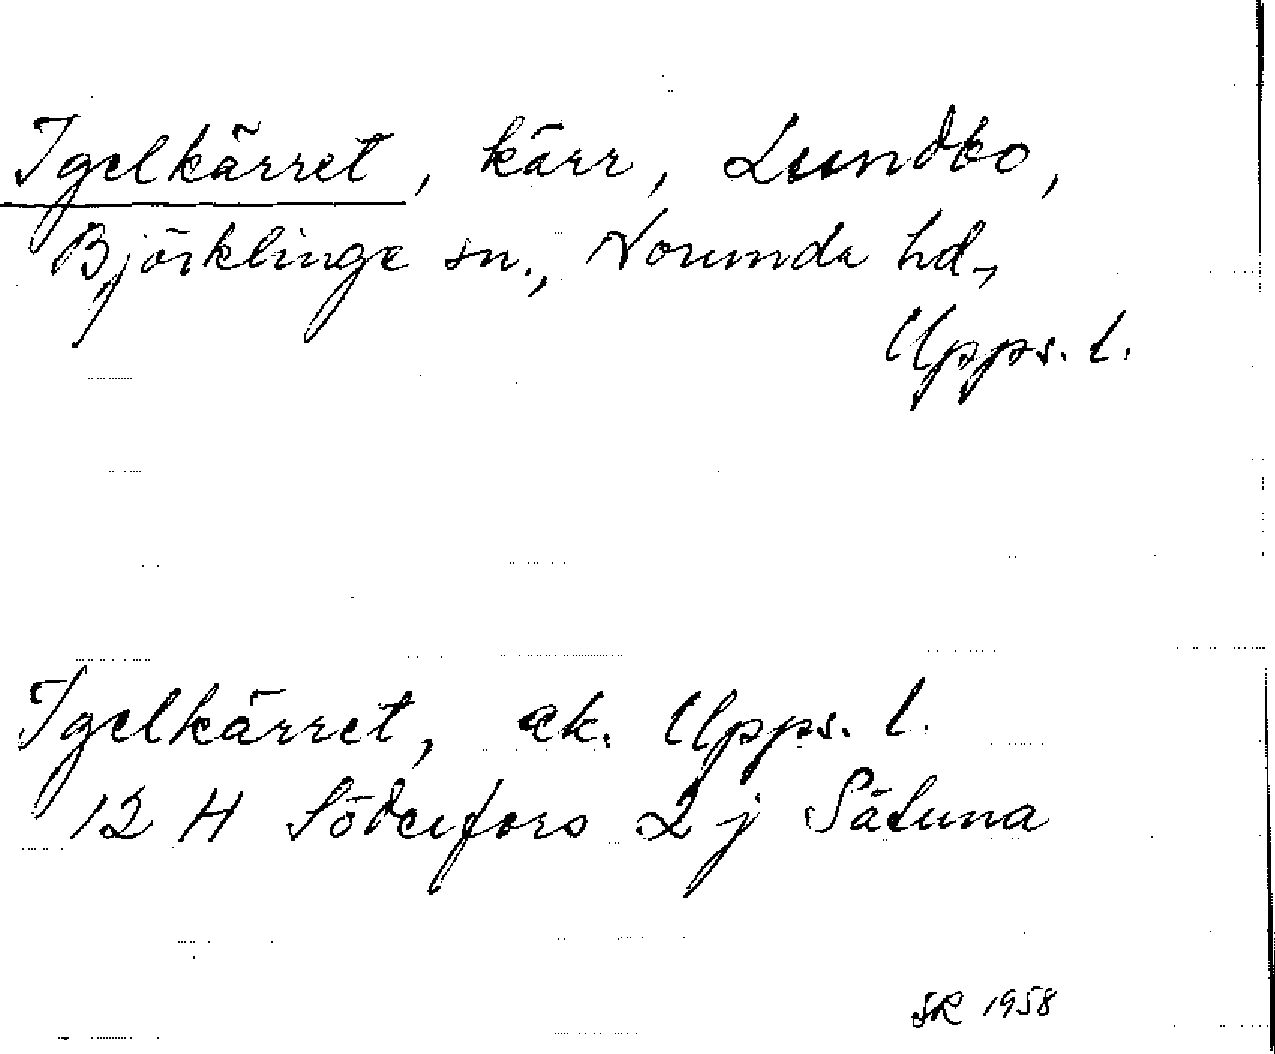 Igelkärret, kärr, Lundbo,
Björklinge sn., Norunda hd.,
Upps. l.
Igelkärret, ek. Upps. l.
12 H Söderfors 2 j Sätuna
SR 1958